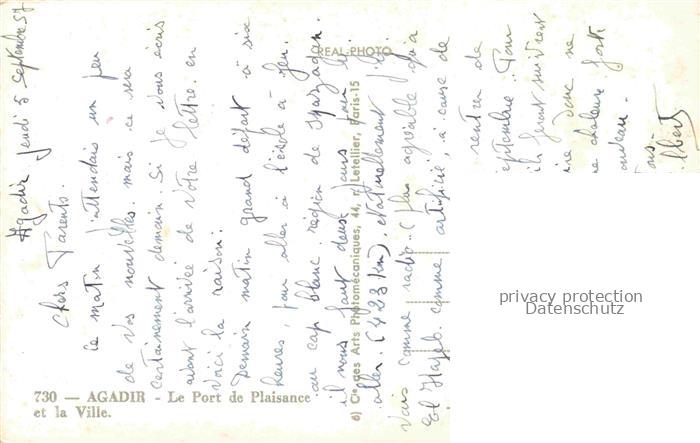 Agadir jeudi 5 septembre 57
Chers Parents.
Ce matin j'attendais un peu
de vos nouvelles. mais ce sera
certainement demain. Si je vous écris
avant l'arrivée de votre lettre. en
voici la raison.
Demain matin grand départ à six
heures, pour aller à l'école à feu.
au cap blanc. région de
il nous faut deux jours pour y
aller. (423 km). Naturellement j'y
vais comme radio.. (plus agréable qu'à
El Hajeb. comme artificier, à cause de
rentrer
septembre. Pour
ils feront suivront
donc ne
ne chaleur forte
REAL PHOTO
6) Cie des Arts Photomécaniques, 44, r. Letellier, Paris-15
730 — AGADIR - Le Port de Plaisance
et la Ville.
privacy protection
Datenschutz